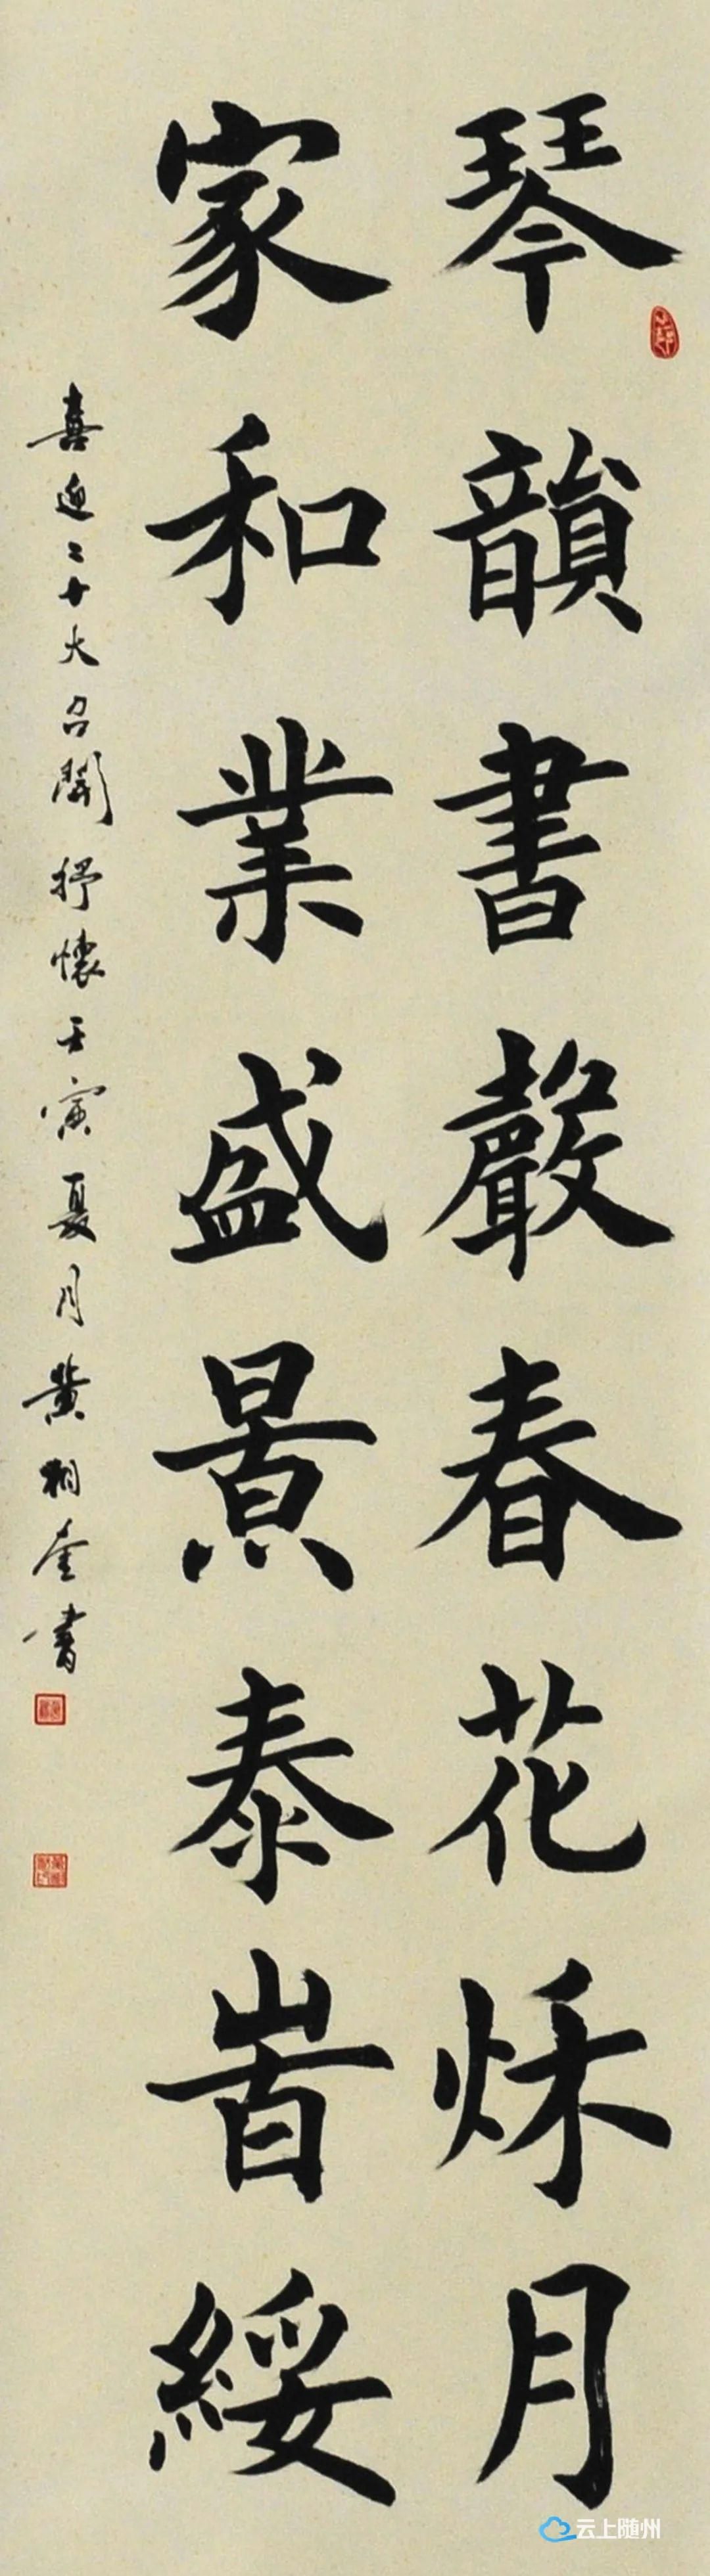 琴韻書聲春花秌月
家和業盛景泰旹綏
喜迎二十大召開抒懷壬寅夏月黄相奎書
云上随州